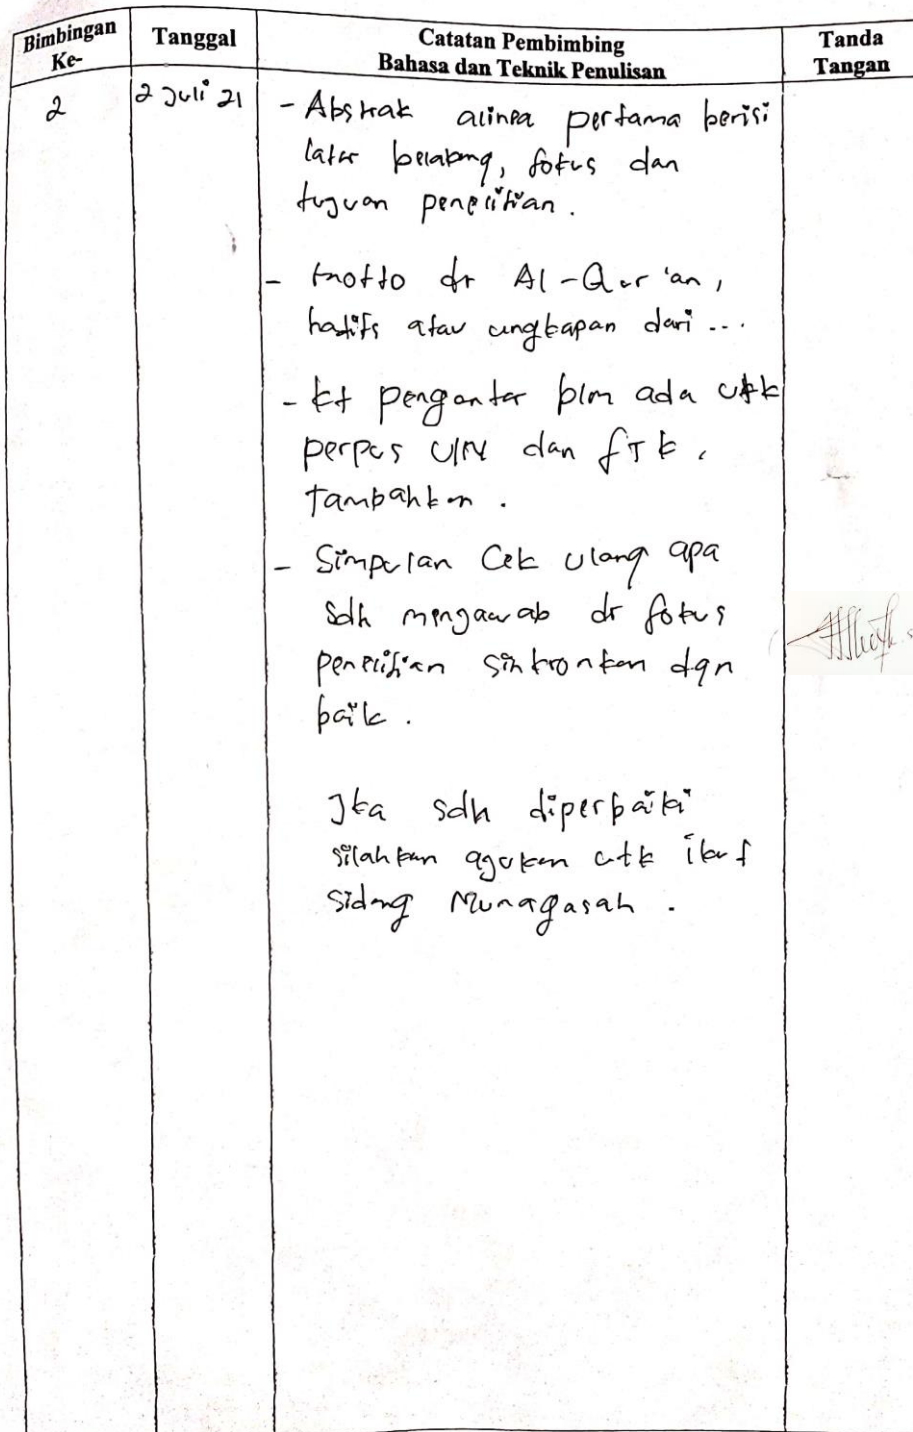 Bimbingan Ke-
Tanggal
Catatan Pembimbing
Bahasa dan Teknik Penulisan
Tanda
Tangan
2
2 Juli 21
- Abstrak alinea pertama berisi
latar belakang, fokus dan
tujuan penelitian.
- motto dr Al-Qur'an,
hadits atau ungkapan dari ...
- kt pengantar blm ada utk
perpus UIN dan FTK,
tambahkan.
- Simpulan Cek ulang apa
sdh menjawab dr fokus
penelitian sinkronkan dgn
baik.
Jka sdh diperbaiki
silahkan ajukan utk ikut
sidang Munaqasah.